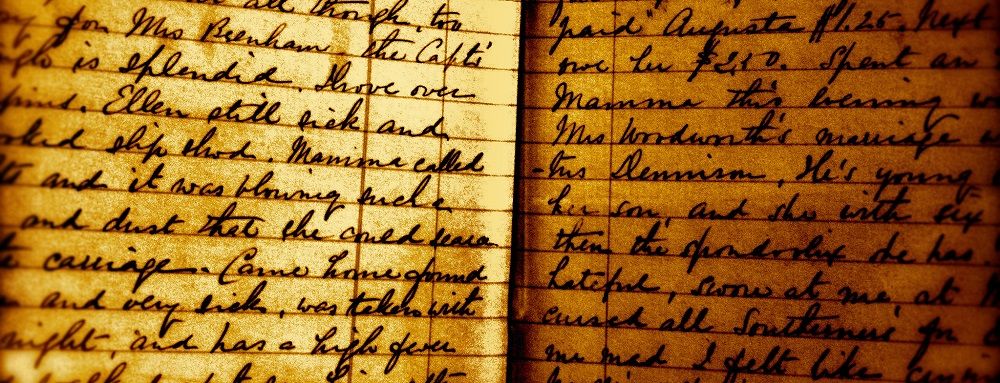 all though, too
for Mrs Beenham the Capt's
is splendid. Drove over
Ellen still sick and
slip shod. Mamma called
and it was blowing such a
and dust that she could scarce
carriage. Came home found
and very sick, was taken with
night, and has a high fever
paid Augusta $1.25. Next
owe her $2.50. Spent an
Mamma this evening
Mrs Woodworth's marriage
Dennison, He's young
her son, and she with six
them the spondoolix he has
hateful, swore at me, at
cursed all Southerners for
me mad I felt like